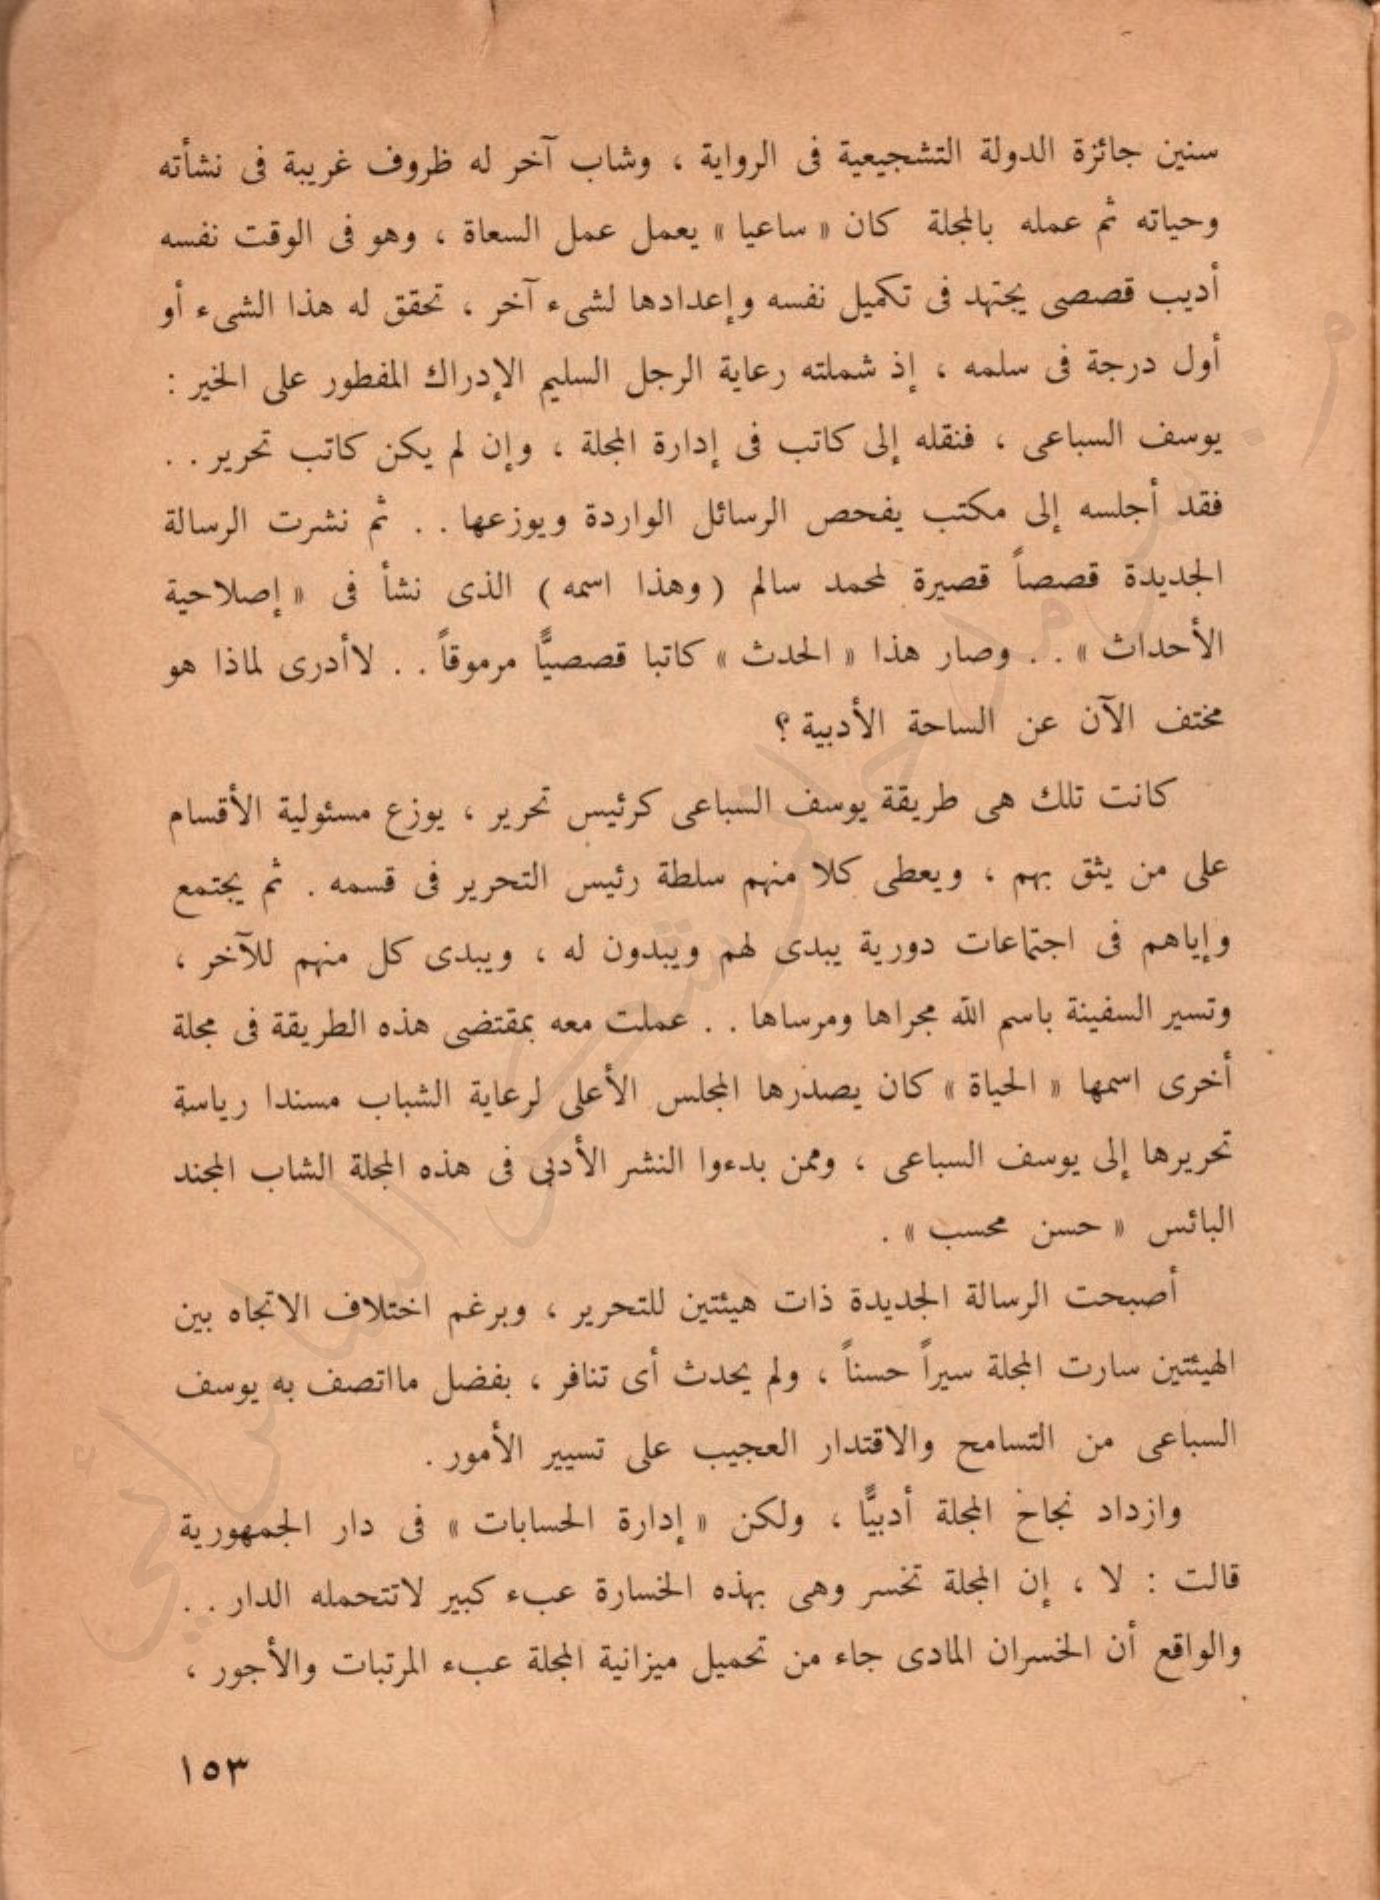 سنين جائزة الدولة التشجيعية فى الرواية ، وشاب آخر له ظروف غريبة فى نشأته
وحياته ثم عمله بالمجلة كان « ساعيا » يعمل عمل السعاة ، وهو فى الوقت نفسه
أديب قصصى يجتهد فى تكميل نفسه وإعدادها لشىء آخر ، تحقق له هذا الشىء أو
أول درجة فى سلمه ، إذ شملته رعاية الرجل السليم الإدراك المفطور على الخير :
يوسف السباعى ، فنقله إلى كاتب فى إدارة المجلة ، وإن لم يكن كاتب تحرير . .
فقد أجلسه إلى مكتب يفحص الرسائل الواردة ويوزعها . . ثم نشرت الرسالة
الجديدة قصصاً قصيرة لمحمد سالم ( وهذا اسمه ) الذى نشأ فى « إصلاحية
الأحداث » . . وصار هذا « الحدث » كاتبا قصصيًّا مرموقاً . . لاأدرى لماذا هو
مختف الآن عن الساحة الأدبية ؟
كانت تلك هى طريقة يوسف السباعى كرئيس تحرير ، يوزع مسئولية الأقسام
على من يثق بهم ، ويعطى كلا منهم سلطة رئيس التحرير فى قسمه . ثم يجتمع
وإياهم فى اجتماعات دورية يبدى لهم ويبدون له ، ويبدى كل منهم للآخر ،
وتسير السفينة باسم الله مجراها ومرساها . . عملت معه بمقتضى هذه الطريقة فى مجلة
أخرى اسمها « الحياة » كان يصدرها المجلس الأعلى لرعاية الشباب مسندا رياسة
تحريرها إلى يوسف السباعى ، وممن بدءوا النشر الأدبى فى هذه المجلة الشاب المجند
البائس « حسن محسب » .
أصبحت الرسالة الجديدة ذات هيئتين للتحرير ، وبرغم اختلاف الاتجاه بين
الهيئتين سارت المجلة سيراً حسناً ، ولم يحدث أى تنافر ، بفضل مااتصف به يوسف
السباعى من التسامح والاقتدار العجيب على تسيير الأمور .
وازداد نجاح المجلة أدبيًّا ، ولكن « إدارة الحسابات » فى دار الجمهورية
قالت : لا ، إن المجلة تخسر وهى بهذه الخسارة عبء كبير لاتتحمله الدار . .
والواقع أن الخسران المادى جاء من تحميل ميزانية المجلة عبء المرتبات والأجور ،
١٥٣